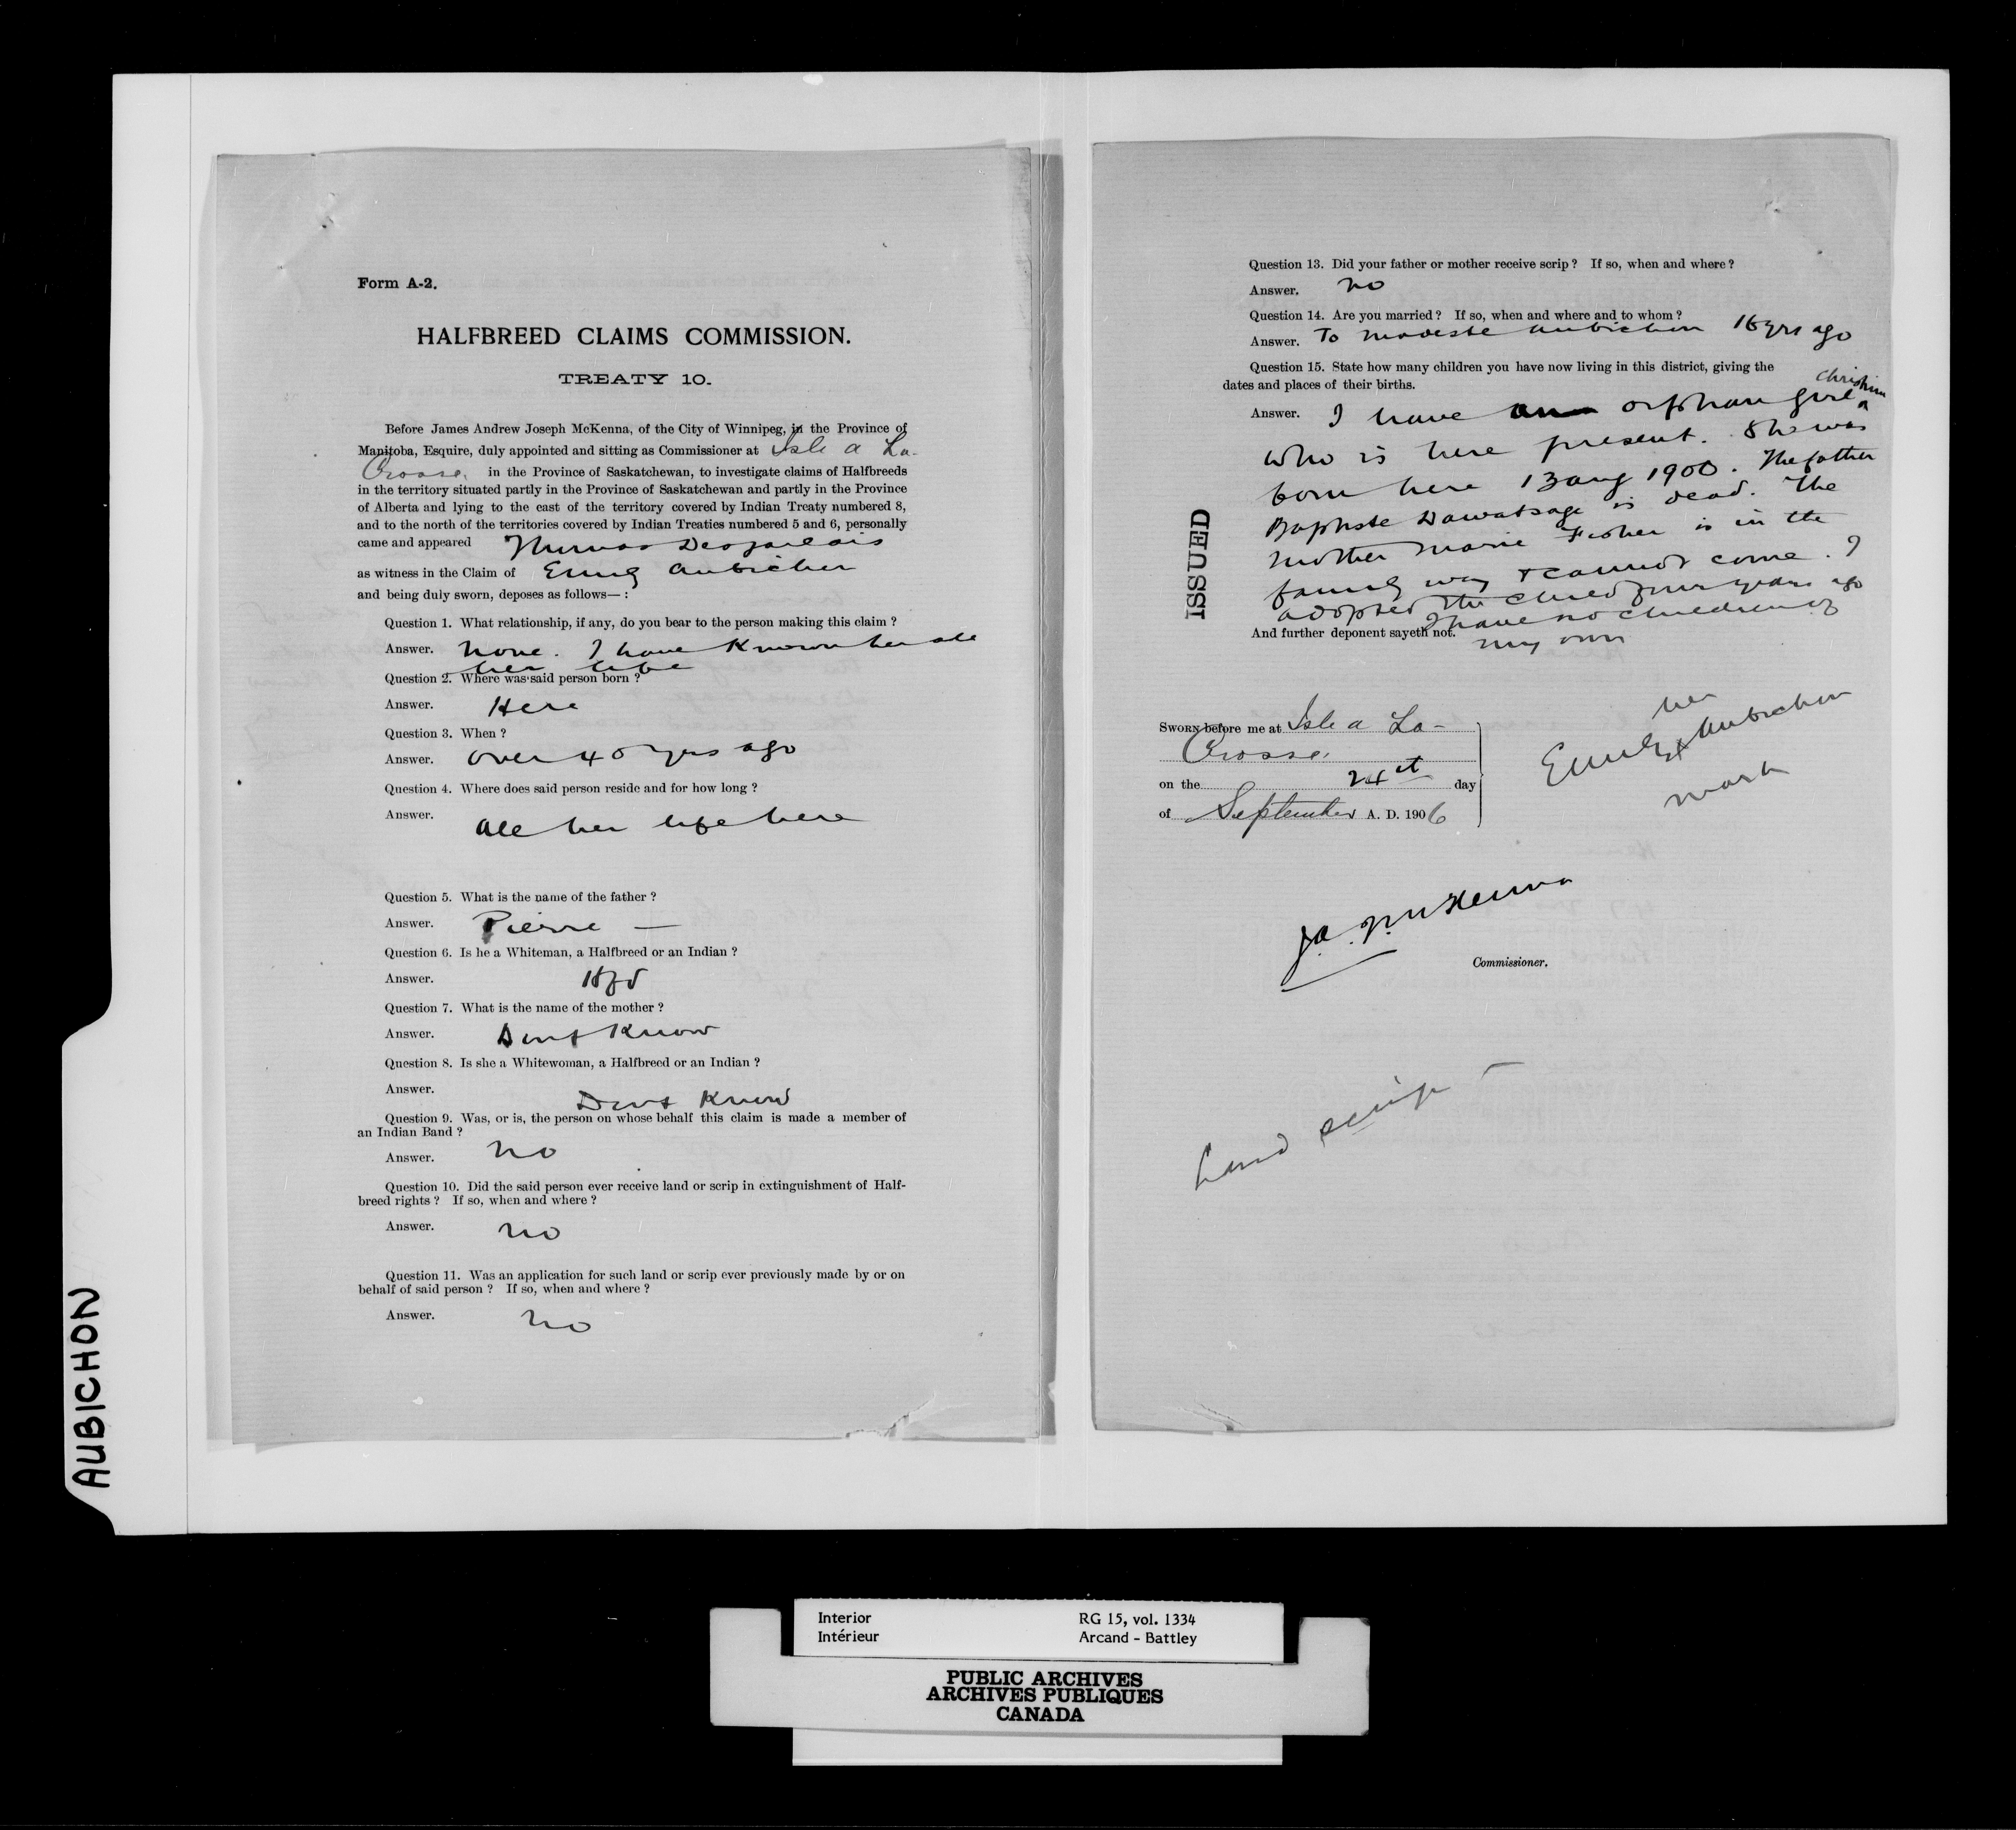 Form A-2.
HALFBREED CLAIMS COMMISSION.
TREATY 10.
Before James Andrew Joseph McKenna, of the City of Winnipeg, in the Province of
Manitoba, Esquire, duly appointed and sitting as Commissioner at Isle a La-
Crosse, in the Province of Saskatchewan, to investigate claims of Halfbreeds
in the territory situated partly in the Province of Saskatchewan and partly in the Province
of Alberta and lying to the east of the territory covered by Indian Treaty numbered 8,
and to the north of the territories covered by Indian Treaties numbered 5 and 6, personally
came and appeared Thomas Desjarlais
as witness in the Claim of Emily Aubichon
and being duly sworn, deposes as follows— :
Question 1. What relationship, if any, do you bear to the person making this claim ?
Answer. None. I have known her all
her life
Question 2. Where was said person born ?
Answer. Here
Question 3. When ?
Answer. Over 40 yrs ago
Question 4. Where does said person reside and for how long ?
Answer. All her life here
Question 5. What is the name of the father ?
Answer. Pierre —
Question 6. Is he a Whiteman, a Halfbreed or an Indian ?
Answer.
Question 7. What is the name of the mother ?
Answer. Dont Know
Question 8. Is she a Whitewoman, a Halfbreed or an Indian ?
Answer. Dont Know
Question 9. Was, or is, the person on whose behalf this claim is made a member of
an Indian Band ?
Answer. no
Question 10. Did the said person ever receive land or scrip in extinguishment of Half-
breed rights ? If so, when and where ?
Answer. no
Question 11. Was an application for such land or scrip ever previously made by or on
behalf of said person ? If so, when and where ?
Answer. no
Question 13. Did your father or mother receive scrip ? If so, when and where ?
Answer. no
Question 14. Are you married ? If so, when and where and to whom ?
Answer. To Modeste Aubichon yrs ago
Question 15. State how many children you have now living in this district, giving the
dates and places of their births.
Answer. I have an orphan girl
who is here present. She was
born here 13 aug 1900. The father
Baptiste is dead. The
mother Marie Fisher is in the
family way & cannot come. I
adopted the child four years ago
I have no children of
my own
And further deponent sayeth not.
ISSUED
SWORN before me at Isle a La-
Crosse.
on the 24th day
of September A. D. 1906
her
Emily x Aubichon
mark
J.A.J. McKenna
Commissioner.
Land scrip —
AUBICHON
Interior RG 15, vol. 1334
Intérieur Arcand - Battley
PUBLIC ARCHIVES
ARCHIVES PUBLIQUES
CANADA